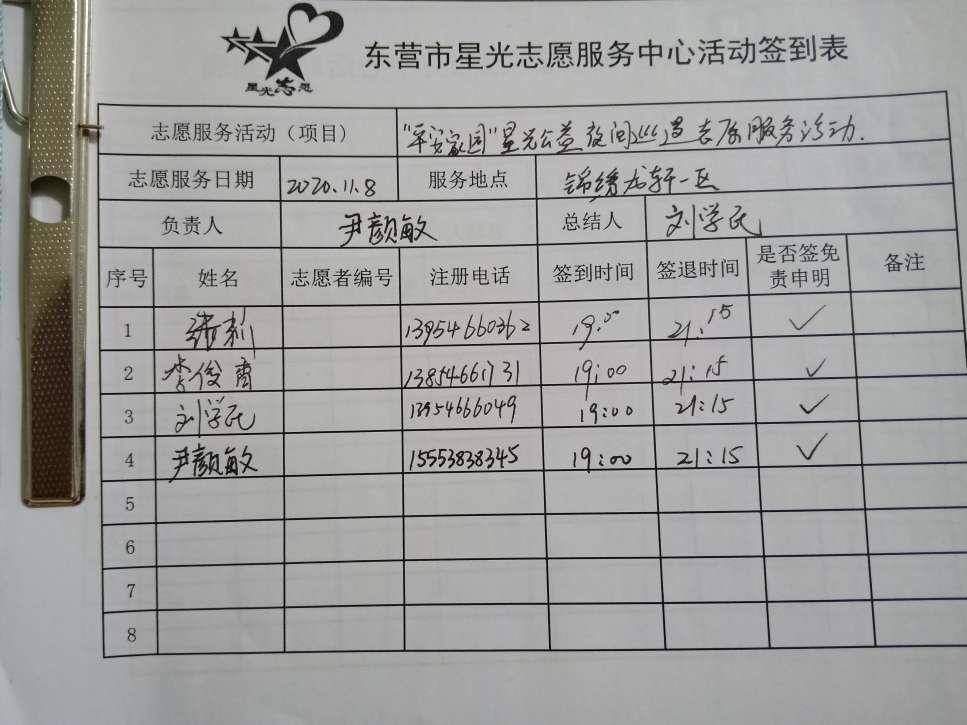 星光志愿
东营市星光志愿服务中心活动签到表
志愿服务活动（项目） “平安家园”星光公益夜间巡逻志愿服务活动.
志愿服务日期 2020.11.8 服务地点 锦绣龙轩一区
负责人 尹颜敏 总结人 刘学民
序号 姓名 志愿者编号 注册电话 签到时间 签退时间 是否签免责申明 备注
1 13954660362 19:00 21:15 ✓
2 李俊 13854661731 19:00 21:15 ✓
3 刘学民 13954666049 19:00 21:15 ✓
4 尹颜敏 15553838345 19:00 21:15 ✓
5
6
7
8